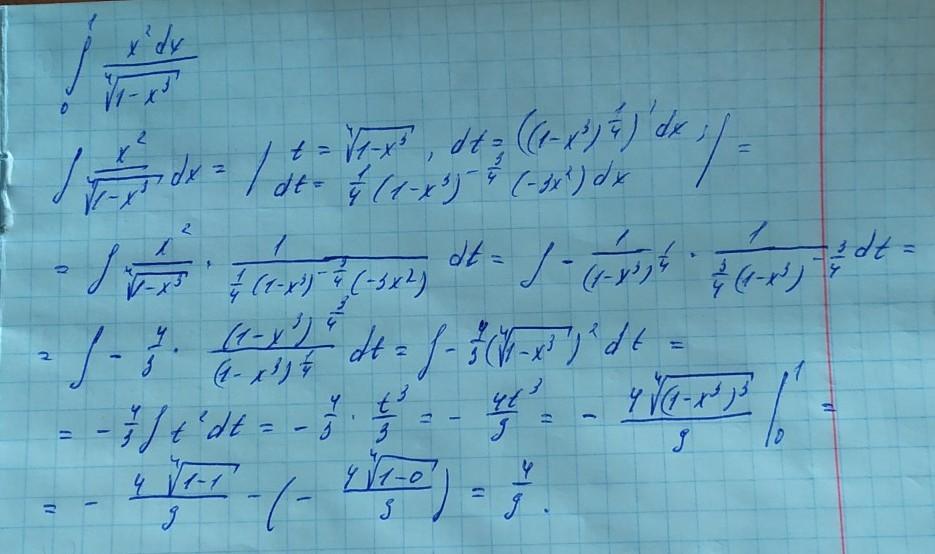 ∫₀¹ x² dx / ∜(1-x³)
∫ x² / ∜(1-x³) dx = | t = ∜(1-x³), dt = ((1-x³)^(1/4))' dx; dt = 1/4 (1-x³)^(-3/4) (-3x²) dx | =
= ∫ x² / ∜(1-x³) · 1 / (1/4 (1-x³)^(-3/4) (-3x²)) dt = ∫ - 1 / (1-x³)^(1/4) · 1 / (3/4 (1-x³)^(-3/4)) dt =
= ∫ - 4/3 · (1-x³)^(3/4) / (1-x³)^(1/4) dt = ∫ - 4/3 (∜(1-x³))² dt =
= - 4/3 ∫ t² dt = - 4/3 · t³/3 = - 4t³/9 = - 4∜((1-x³)³) / 9 |₀¹ =
= - 4∜(1-1) / 9 - (- 4∜(1-0) / 9) = 4/9.